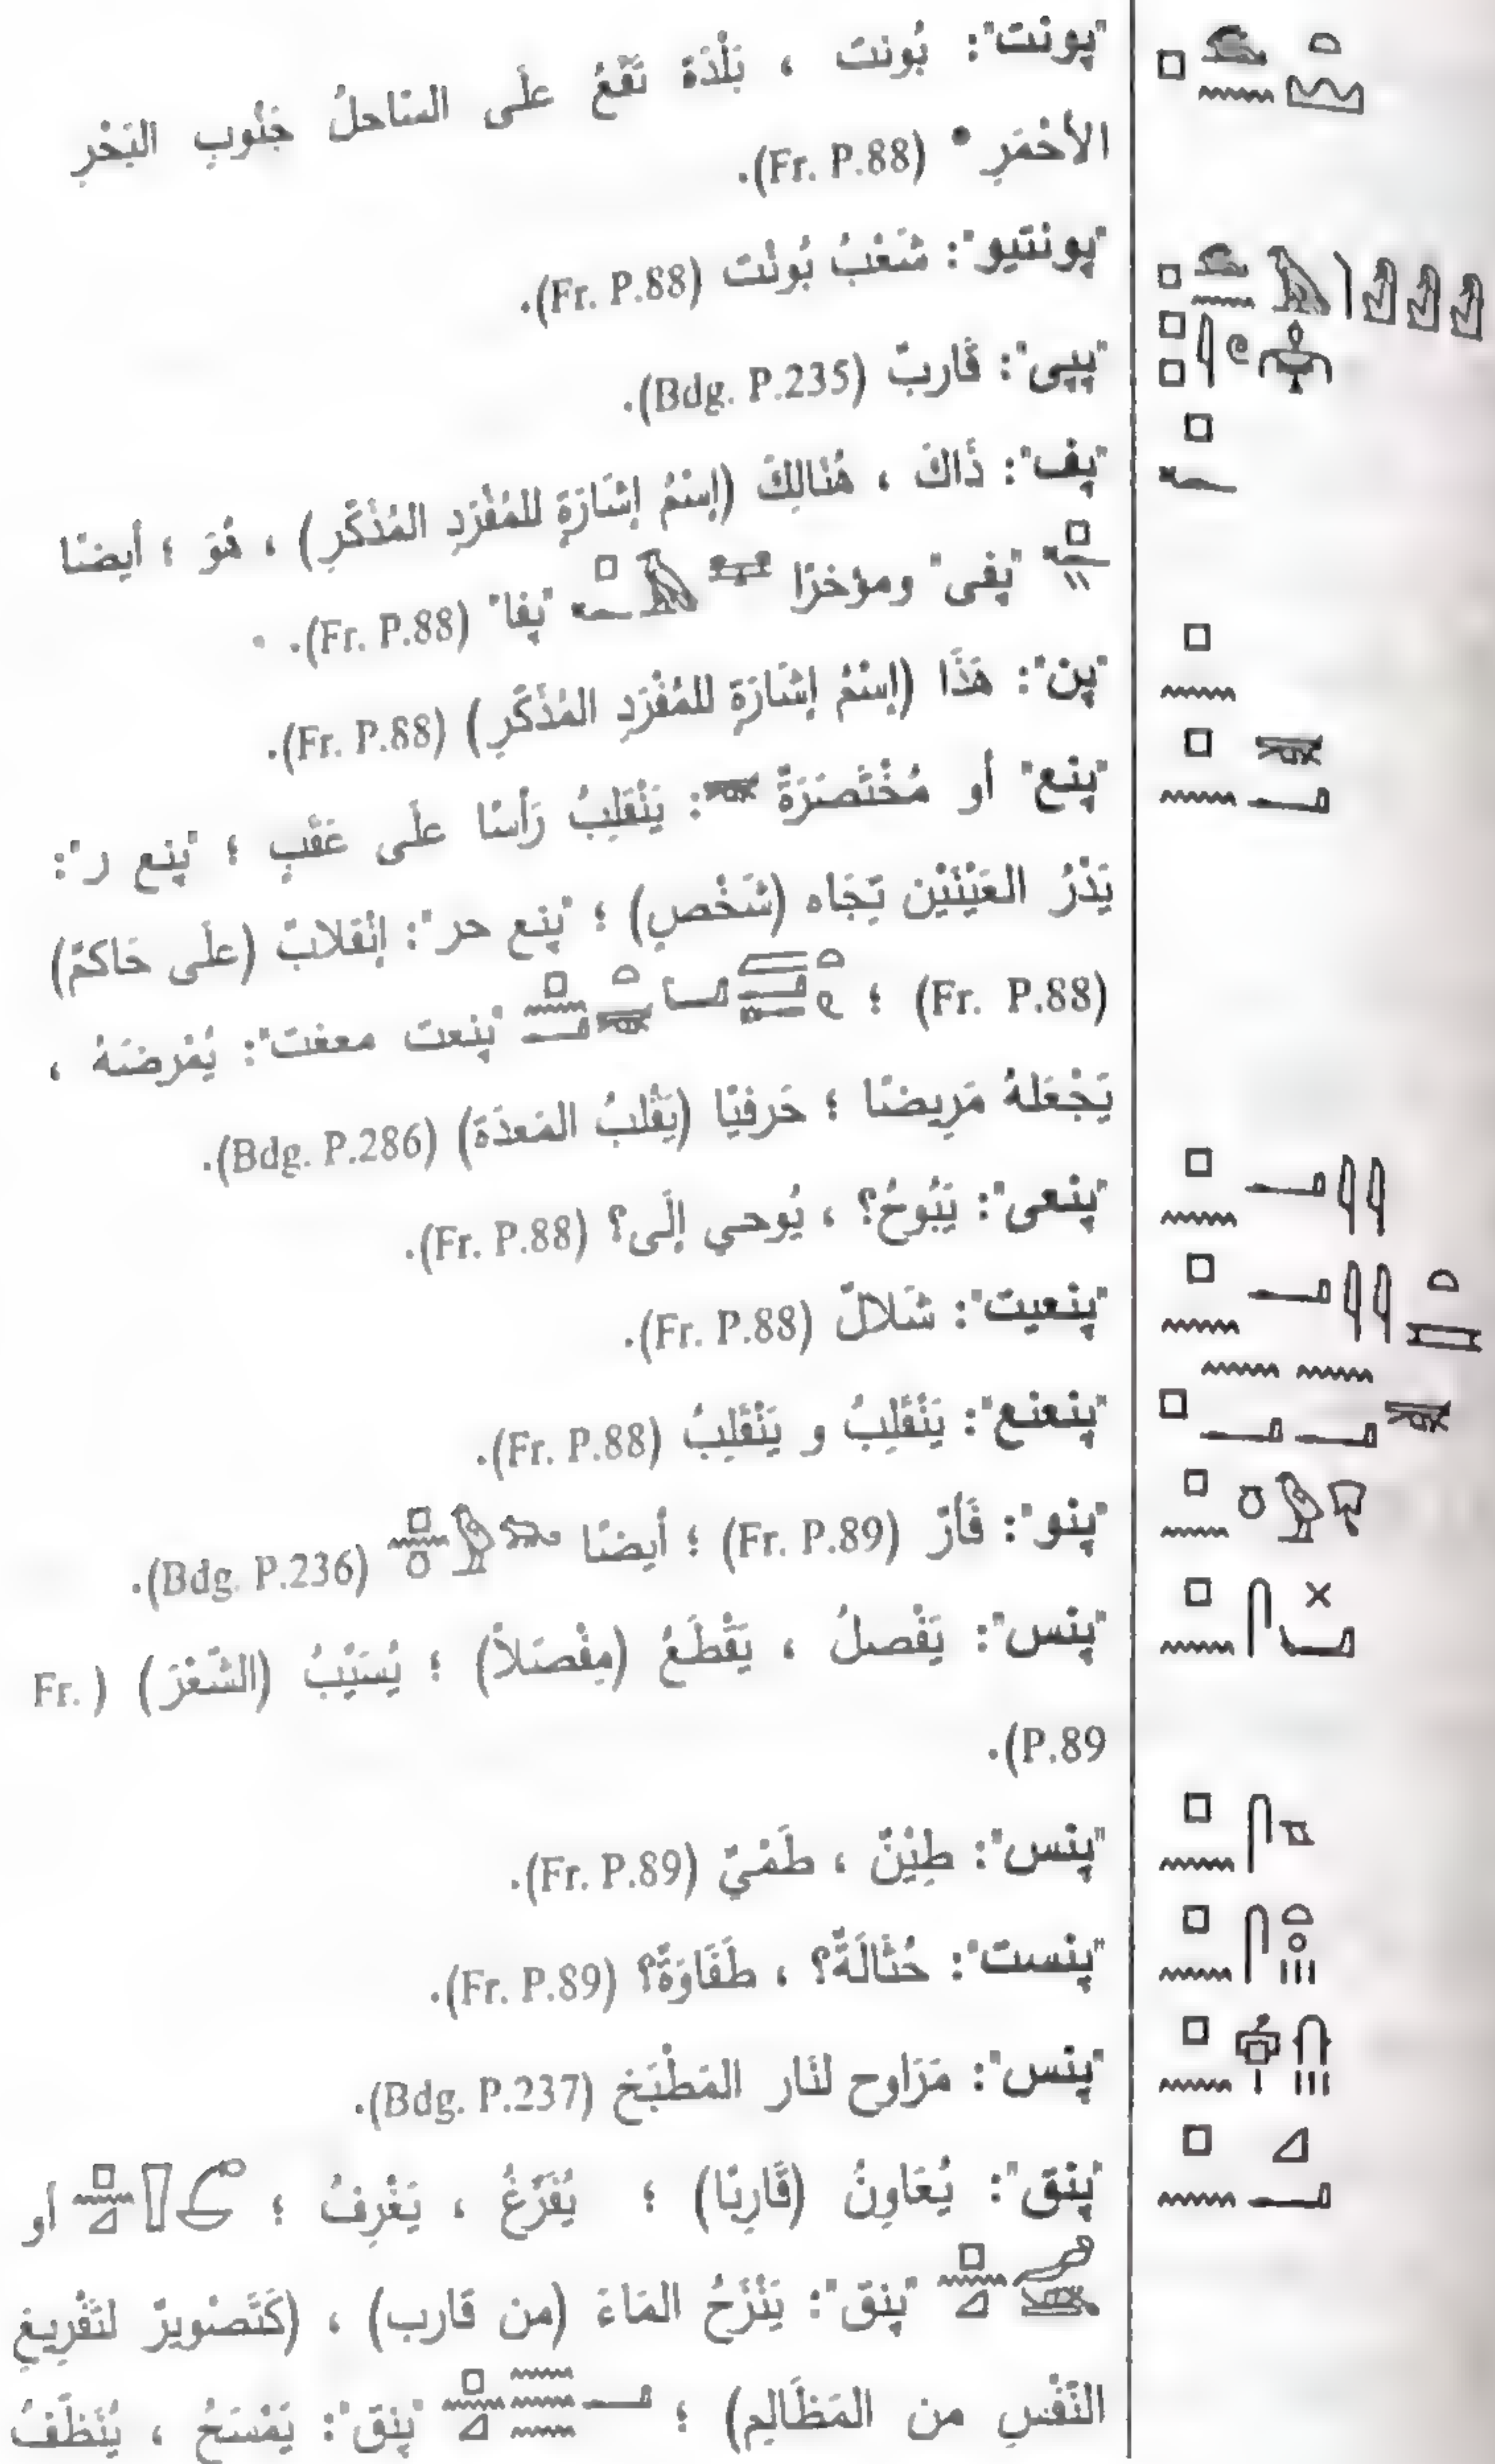 "پونت": بُونت ، بَلْدَةٌ تَقَعُ علَى السَّاحلُ جَنُوبِ البَحْرِ
الأحْمَرِ • (Fr. P.88).
"پونتيو": شَعْبُ بُونْت (Fr. P.88).
"پپى": قَاربٌ (Bdg. P.235).
"پف": ذَاكَ ، هُنَالِكَ (إسْمُ إشَارَةٍ للمُفْرَدِ المُذَكَّرِ) ، هُوَ ؛ أيضًا
"پفى" ومؤخرًا "پفا" (Fr. P.88).
"پن": هَذَا (إسْمُ إشَارَةٍ للمُفْرَدِ المُذَكَّرِ) (Fr. P.88).
"پنع" أو مُخْتَصَرَةً : يَنْقَلِبُ رَأسًا علَى عَقْبٍ ؛ "پنع ر":
يَدْرُ العَيْنَيْن تِجَاه (شَخْصٍ) ؛ "پنع حر": إنْقلابٌ (علَى حَاكمٌ)
(Fr. P.88) ؛ "پنعت معفت": يُمْرضَهُ ،
يَجْعَلهُ مَرِيضًا ؛ حَرفيًا (يَقْلبُ المَعدَةَ) (Bdg. P.286).
"پنعى": يَبُوحُ؟ ، يُوحي إلَى؟ (Fr. P.88).
"پنعيت": شَلالٌ (Fr. P.88).
"پنعنع": يَنْقَلِبُ و يَنْقَلِبُ (Fr. P.88).
"پنو": فَأرٌ (Fr. P.89) ؛ أيضًا (Bdg. P.236).
"پنس": يَفْصلُ ، يَقْطَعُ (مِفْصَلاً) ؛ يُسَيْبُ (الشَّعْرَ) (Fr.
P.89).
"پنس": طِيْنٌ ، طَمْيٌ (Fr. P.89).
"پنست": حُثَالَةٌ؟ ، طَفَاوَةٌ؟ (Fr. P.89).
"پنس": مَرَاوح لنَار المَطْبَخ (Bdg. P.237).
"پنق": يُعَاوِنُ (قَارِبًا) ؛ يُفَرِّغُ ، يَغْرِفُ ؛ أو
"پنق": يَنْزَحُ المَاءَ (من قَارب) ، (كَتَصْويرٌ لتَفْرِيغِ
النَّفْسِ من المَظَالِم) ؛ "پنق": يَمْسَحُ ، يُنَظِّفُ